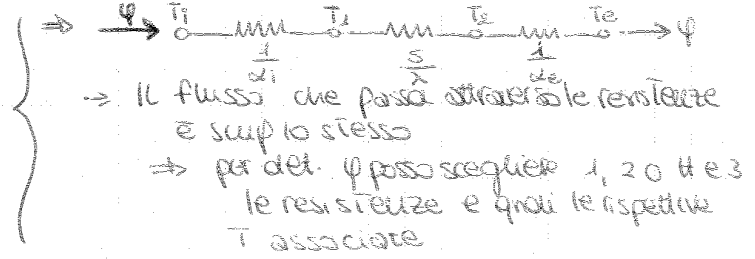 ⇒ φ → Ti T1 T2 Te → φ
1/αi s/λ 1/αe
→ Il flusso che passa attraverso le resistenze
è semp lo stesso
⇒ per det. φ posso scegliere 1, 2 o tt e 3
le resistenze e quindi le rispettive
T associate